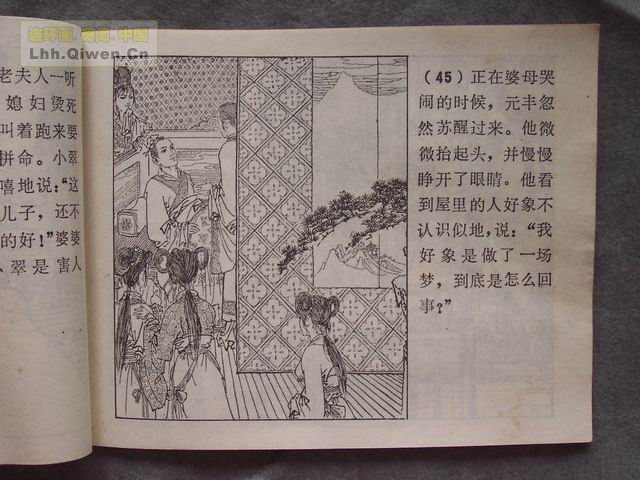 连环画·奇闻·中国
Lhh.Qiwen.Cn
老夫人一听
媳妇烫死
叫着跑来要
拼命。小翠
嘻地说:“这
儿子,还不
的好!”婆婆
翠是害人
(45)正在婆母哭
闹的时候,元丰忽
然苏醒过来。他微
微抬起头,并慢慢
睁开了眼睛。他看
到屋里的人好象不
认识似地,说:“我
好象是做了一场
梦,到底是怎么回
事?”